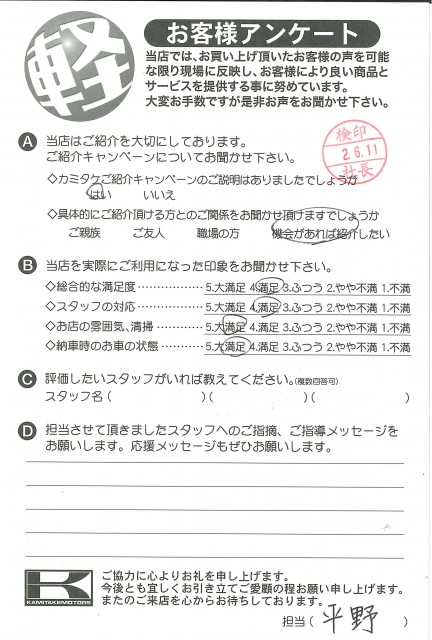 軽
お客様アンケート
当店では、お買い上げ頂いたお客様の声を可能
な限り現場に反映し、お客様により良い商品と
サービスを提供する事に努めています。
大変お手数ですが是非お声をお聞かせ下さい。
A 当店はご紹介を大切にしております。
ご紹介キャンペーンについてお聞かせ下さい。
検印
26.11
社長
◇カミタケご紹介キャンペーンのご説明はありましたでしょうか
はい いいえ
◇具体的にご紹介頂ける方とのご関係をお聞かせ頂けますでしょうか
ご親族 ご友人 職場の方 機会があれば紹介したい
B 当店を実際にご利用になった印象をお聞かせ下さい。
◇総合的な満足度 ‥‥‥‥‥‥ 5.大満足 4.満足 3.ふつう 2.やや不満 1.不満
◇スタッフの対応 ‥‥‥‥‥‥ 5.大満足 4.満足 3.ふつう 2.やや不満 1.不満
◇お店の雰囲気、清掃 ‥‥‥‥ 5.大満足 4.満足 3.ふつう 2.やや不満 1.不満
◇納車時のお車の状態 ‥‥‥‥ 5.大満足 4.満足 3.ふつう 2.やや不満 1.不満
C 評価したいスタッフがいれば教えてください。(複数回答可)
スタッフ名 ( )( )( )
D 担当させて頂きましたスタッフへのご指摘、ご指導メッセージを
お願いします。応援メッセージもぜひお願いします。
K
KAMITAKEMOTORS
ご協力に心よりお礼を申し上げます。
今後とも宜しくお引き立てご愛顧の程お願い申し上げます。
またのご来店を心からお待ちしております。
担当 ( 平野 )